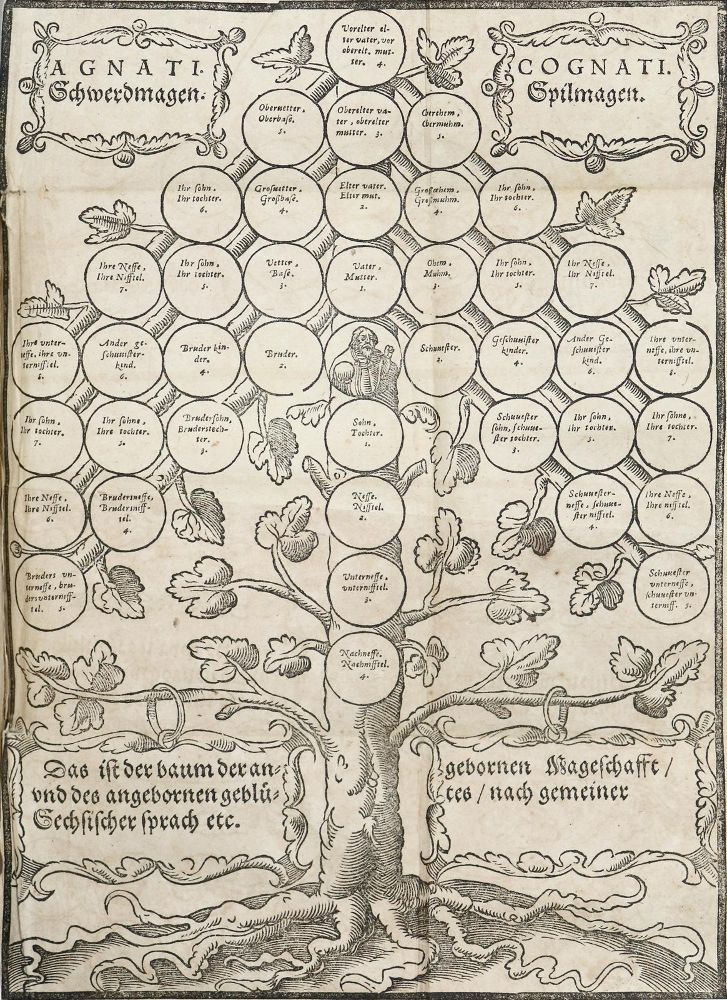 AGNATI.
Schwerdmagen.
COGNATI.
Spilmagen.
Vorelter el-
ter vater, vor
oberelt. mut-
ter. 4.
Obervetter,
Oberbase.
5.
Oberelter va-
ter, oberelter
mutter. 3.
Oberohem,
Obermuhm.
5.
Ihr sohn,
Ihr tochter.
6.
Grosvetter,
Großbase.
4.
Elter vater.
Elter mut.
2.
Großohem,
Großmuhm.
4.
Ihr sohn,
Ihr tochter.
6.
Ihre Neffe,
Ihre Nifftel.
7.
Ihr sohn,
Ihr tochter.
5.
Vetter,
Base.
3.
Vater,
Mutter.
1.
Ohem,
Muhm.
3.
Ihr sohn,
Ihr tochter.
5.
Ihr Neffe,
Ihr Nifftel.
7.
Ihre vnter-
neffe, ihre vn-
ternifftel.
8.
Ander ge-
schwister-
kind.
6.
Bruder kin-
der.
4.
Bruder.
2.
Schwester.
2.
Geschwister
kinder.
4.
Ander Ge-
schwister
kind.
6.
Ihre vnter-
neffe, ihre vn-
ternifftel.
8.
Ihr sohn,
Ihr tochter.
7.
Ihr sohn,
Ihre tochter.
5.
Brudersohn,
Bruderstoch-
ter.
3.
Sohn,
Tochter.
1.
Schwester
sohn, schwe-
ster tochter.
3.
Ihr sohn,
Ihr tochter.
5.
Ihr sohne,
Ihre tochter.
7.
Ihre Neffe,
Ihre Nifftel.
6.
Brudersneffe,
Brudersniff-
tel.
4.
Neffe.
Nifftel.
2.
Schwester-
neffe, schwe-
ster nifftel.
4.
Ihre Neffe,
Ihre nifftel.
6.
Bruders vn-
terneffe, bru-
ders vnterniff-
tel. 5.
Vnterneffe,
vnternifftel.
3.
Schwester
vnterneffe,
schwester vn-
terniff. 5.
Nachneffe,
Nachnifftel.
4.
Das ist der baum der an-
gebornen Mageschafft /
vnd des angebornen geblü-
tes / nach gemeiner
Sechsischer sprach etc.